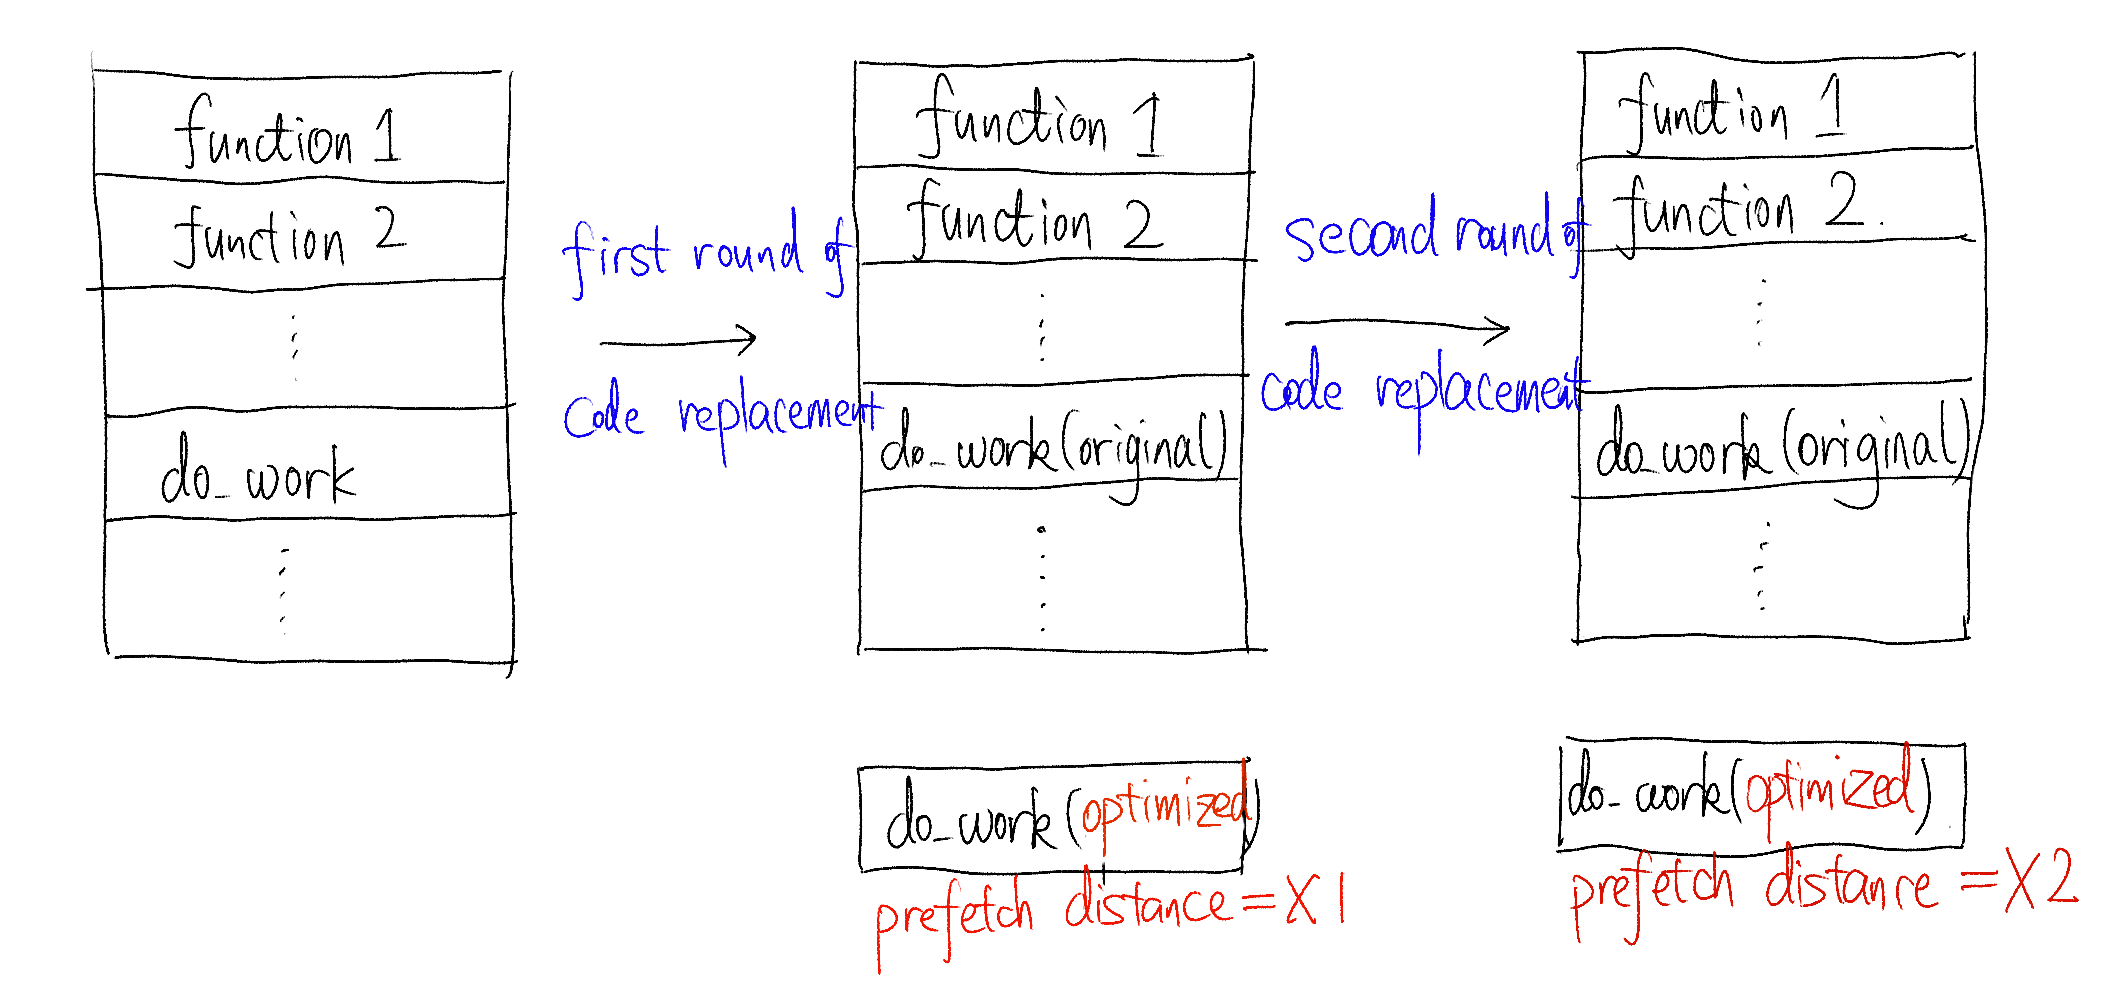 function 1
function 2
do_work
first round of
code replacement
function 1
function 2
do_work(original)
do_work(optimized)
prefetch distance=X1
second round of
code replacement
function 1
function 2.
do_work(original)
do_work(optimized)
prefetch distance=X2